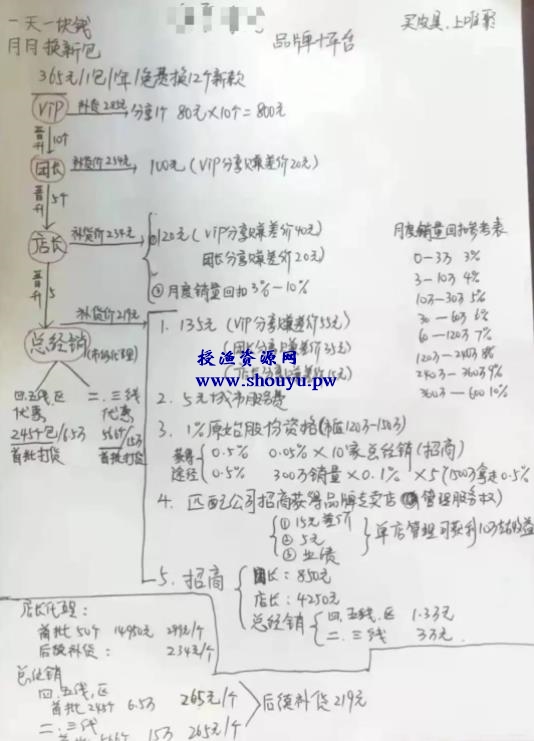 一天一块钱
月月换新包
品牌+平台
买皮具，上唯聚
365元/1包/1年/免费换12个新款
VIP 补货285元 分享1个 80元×10个=800元
晋升 10个
团长 补货价254元 100元（VIP分享1赚差价20元）
晋升 5个
店长 补货价234元 ①120元（VIP分享1赚差价40元）
团长分享1赚差价20元）
②月度销量回扣3%-10%
月度销量回扣参考表
0-3万 3%
3-10万 4%
10万-30万 5%
30-60万 6%
60-120万 7%
120万-240万 8%
240万-360万 9%
360万-600 10%
晋升 5
总经销（市场代理） 补货价219元
1. 135元（VIP分享1赚差价55元）
（团长分享1赚差价35元）
（店长分享1赚差价15元）
授渔资源网
www.shouyu.pw
2. 5元城市服务费
3. 1%原始股份资格（市值120万-150万）
获得途径
0.5% 0.05%×10家总经销（招商）
0.5% 300万销量×0.1%×5（1500万拿走0.5%
4. 匹配公司招商获得品牌专卖店（管理服务权）
①15元差价
②5元
③业绩
单店管理可获利10万左右收益
5. 招商
团长：850元
店长：4250元
总经销 四.五线.区 1.3万元
二.三线 3万元.
四.五线.区代表
245个包/6.5万
首批打货
二.三线代表
566个/15万
首批打货
店长代理：
首批50个 14950元 299元/个
后续补货： 234元/个
总经销
四.五线.区
首批245个 6.5万 265元/个
后续补货219元
二.三线
首批566个 15万 265元/个